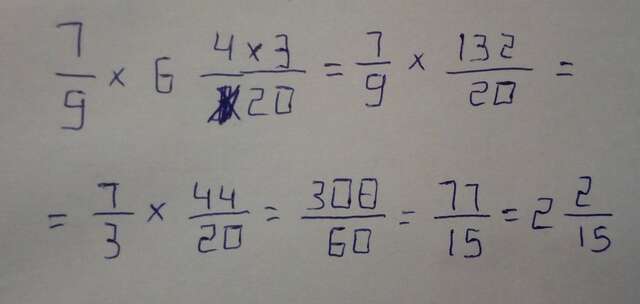 7/9 × 6 4×3/20 = 7/9 × 132/20 =
= 7/3 × 44/20 = 308/60 = 77/15 = 2 2/15